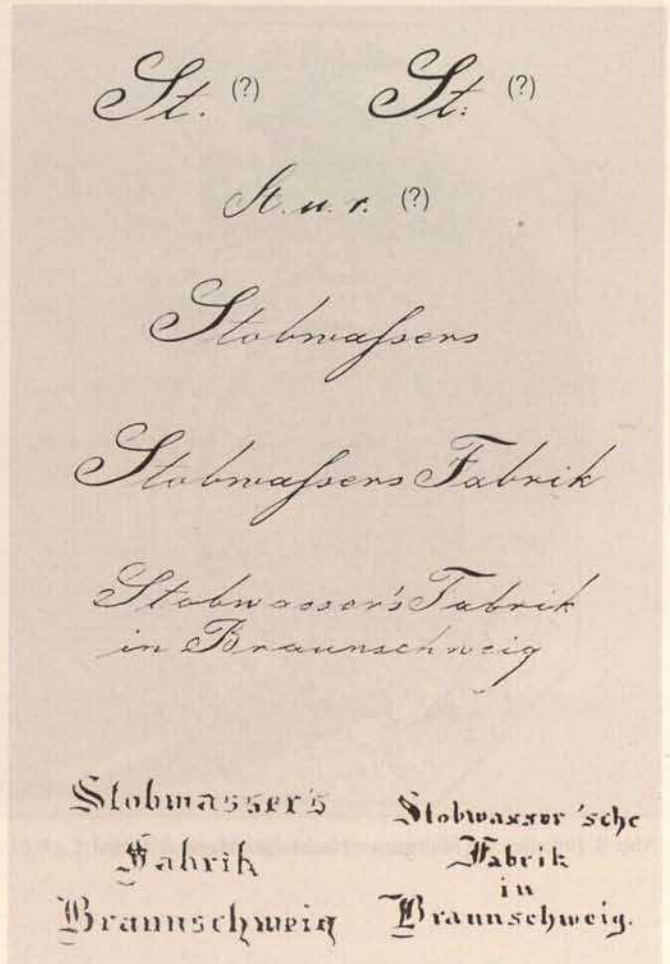 St. (?) St: (?)
St. u. r. (?)
Stobwaſsers
Stobwaſsers Fabrik
Stobwasser's Fabrik
in Braunschweig
Stobwasser's
Fabrik
Braunschweig
Stobwasser'sche
Fabrik
in
Braunschweig.